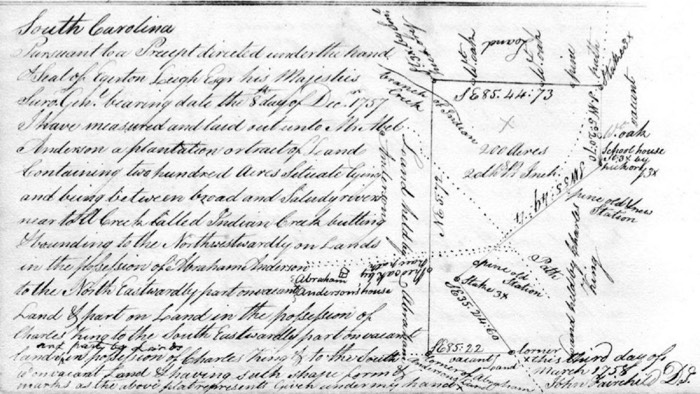 South Carolina
Pursuant to a Precept directed under the hand
& Seal of Egerton Leigh Esqr his Majesties
Surv. Genl. bearing date the 8th day of Decr. 1757
I have measured and laid out unto Mr Abel
Anderson a plantation or tract of Land
Containing two hundred Acres Scituate lying
and being between broad and Saludy rivers
near to a Creek Called Indian Creek butting
& bounding to the Northwestwardly on Lands
in the possession of Abraham Anderson
to the North Eastwardly part on vacant
Land & part on Land in the possession of
Charles King to the South Eastwardly part on vacant
and part by
Land in possession of Charles King & to the South
W on vacant Land & having such shape form &
marks as the above plat represents Given under my hand
this third day of
March 1758
John Fairchild D.S.
Land
Wt oak
W oak
pine
Stake 3x
vacant
branch of Indian
Creek
S E 85. 44:73
200 Acres
20 Ch Pr Inch
Wt oak
School house
3x by
hickory 3x
pine old 3 xes
Station
Path
pine old
Station
Stake 3x
Abraham
Anderson's house
Land held by Abraham
Anderson
Land held by Charles
King
S E 35. 22:60
S E 85. 22
vacant
Land
Corner of Abraham
Anderson's Land
Corner
3x